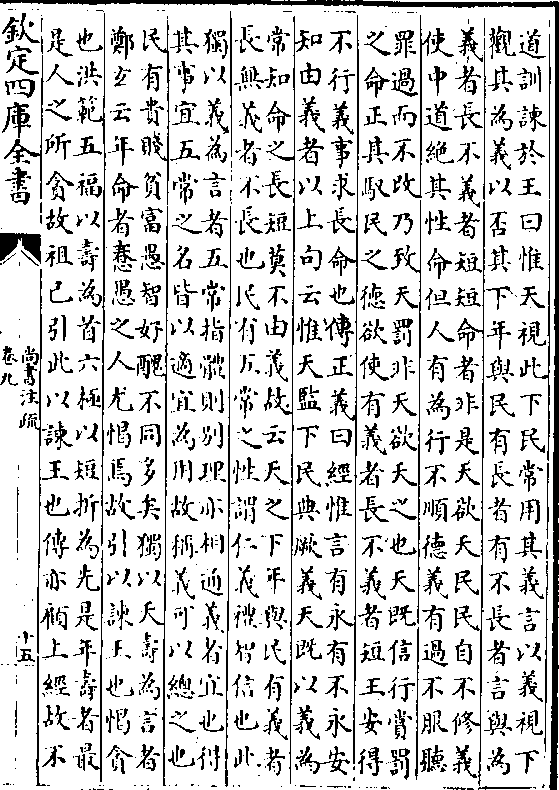 道訓諫於王曰惟天視此下民常用其義言以義視下
觀其為義以否其下年與民有長者有不長者言與為
義者長不義者短短命者非是天欲夭民民自不修義
使中道絶其性命但人有為行不順德義有過不服聽
罪過而不改乃致天罰非天欲夭之也天既信行賞罰
之命正其馭民之德欲使有義者長不義者短王安得
不行義事求長命也傳正義曰經惟言有永有不永安
知由義者以上句云惟天監下民典厥義天既以義為
常知命之長短莫不由義故云天之下年與民有義者
長無義者不長也民有五常之性謂仁義禮智信也此
獨以義為言者五常指體則别理亦相通義者宜也得
其事宜五常之名皆以適宜為用故稱義可以總之也
民有貴賤貧富愚智好醜不同多矣獨以夭壽為言者
鄭玄云年命者憃愚之人尤愒焉故引以諫王也愒貪
也洪範五福以壽為首六極以短折為先是年壽者最
是人之所貪故祖己引此以諫王也傳亦顧上經故不
欽定四庫全書
尚書注疏
卷九
十五